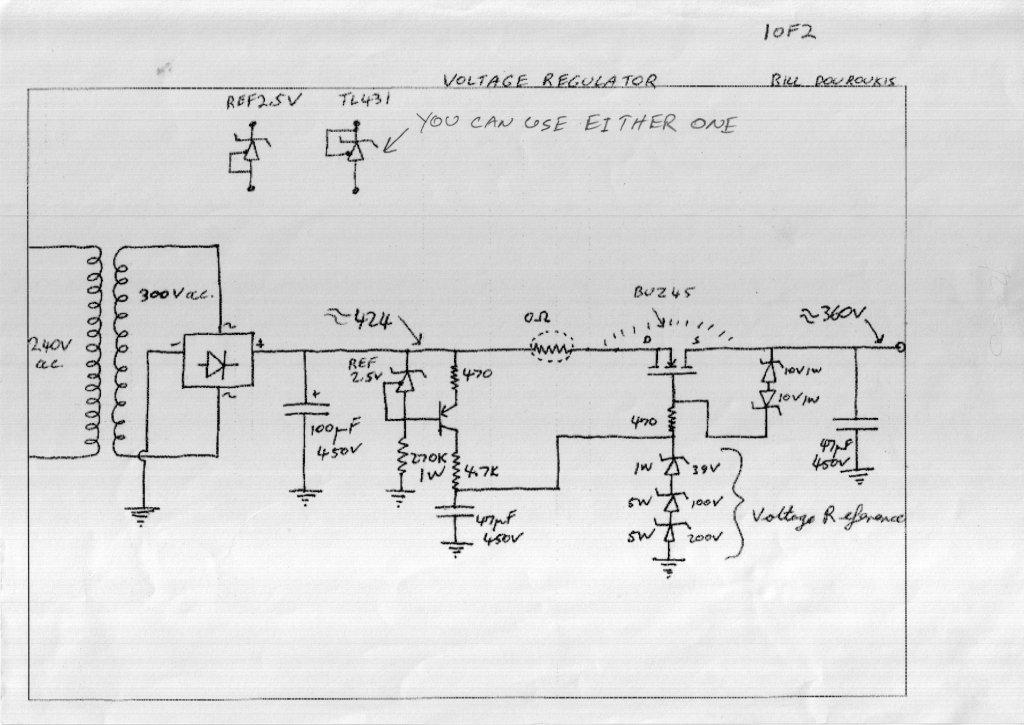 1OF2
VOLTAGE REGULATOR
BILL DOUROUKIS
REF2.5V
TL431
YOU CAN USE EITHER ONE
300V a.c.
240V
a.c.
~
-
+
~
≈424
REF
2.5V
470
0Ω
BUZ45
D
S
≈360V
10V1W
10V1W
+
100µF
450V
270K
1W
4.7K
47µF
450V
470
1W
39V
5W
100V
5W
200V
Voltage Reference
47µF
450V